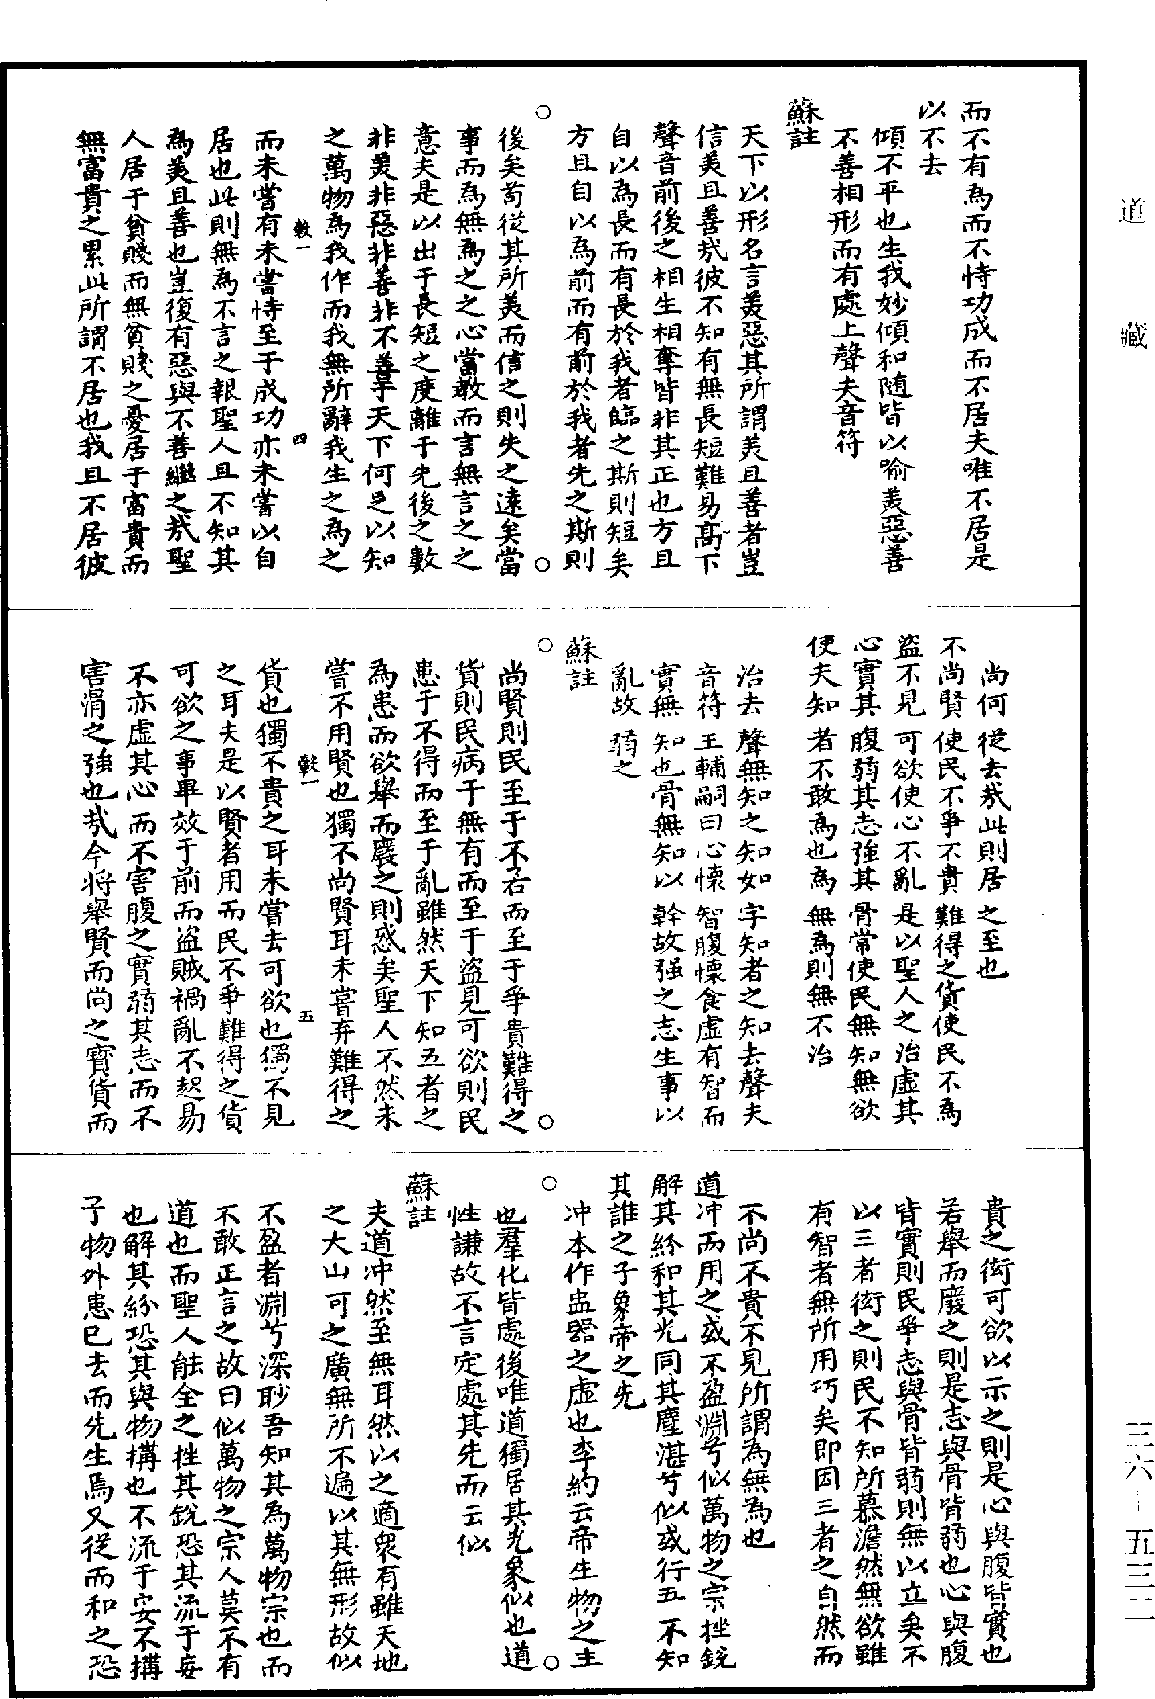 道藏
而不有為而不恃功成而不居夫唯不居是
以不去
傾不平也生我妙傾和随皆以喻美惡善
不善相形而有處上聲夫音符
蘇註
天下以形名言美惡其所謂美且善者豈
信美且善哉彼不知有無長短難易高下
聲音前後之相生相奪皆非其正也方且
自以為長而有長於我者臨之斯則短矣
方且自以為前而有前於我者先之斯則
後矣苟從其所美而信之則失之遠矣當
事而為無為之之心當教而言無言之之
意夫是以出于長短之度離于先後之數
非美非惡非善非不善乎天下何足以知
之萬物為我作而我無所辭我生之為之
數一
四
而未嘗有未嘗恃至于成功亦未嘗以自
居也此則無為不言之報聖人且不知其
為美且善也豈復有惡與不善繼之哉聖
人居于貧賤而無貧賤之憂居于富貴而
無富貴之累此所謂不居也我且不居彼
尚何從去哉此則居之至也
不尚賢使民不爭不貴難得之貨使民不為
盜不見可欲使心不亂是以聖人之治虛其
心實其腹弱其志強其骨常使民無知無欲
使夫知者不敢為也為無為則無不治
治去聲無知之知如字知者之知去聲夫
音符王輔嗣曰心懷智腹懷食虛有智而
實無知也骨無知以幹故强之志生事以
亂故弱之
蘇註
尚賢則民至于不若而至于爭貴難得之
貨則民病于無有而至于盜見可欲則民
患于不得而至于亂雖然天下知五者之
為患而欲舉而廢之則惑矣聖人不然未
嘗不用賢也獨不尚賢耳未嘗弃難得之
數一
五
貨也獨不貴之耳未嘗去可欲也獨不見
之耳夫是以賢者用而民不爭難得之貨
可欲之事畢效于前而盜賊禍亂不起易
不亦虛其心而不害腹之實弱其志而不
害涓之強也哉今将舉賢而尚之寳貨而
貴之衒可欲以示之則是心與腹皆實也
若舉而廢之則是志與骨皆弱也心與腹
皆實則民爭志與骨皆弱則無以立矣不
以三者衒之則民不知所慕澹然無欲雖
有智者無所用巧矣即因三者之自然而
不尚不貴不見所謂為無為也
道冲而用之或不盈淵兮似萬物之宗挫銳
解其紛和其光同其塵湛兮似或行五不知
其誰之子象帝之先
冲本作盅器之虛也李約云帝生物之主
也羣化皆處後唯道獨居其先象似也道
性謙故不言定處其先而云似
蘇註
夫道冲然至無耳然以之適衆有雖天地
之大山可之廣無所不遍以其無形故似
不盈者淵兮深眇吾知其為萬物宗也而
不敢正言之故曰似萬物之宗人莫不有
道也而聖人能全之挫其銳恐其流于妄
也解其紛恐其與物構也不流于妄不搆
子物外患已去而先生焉又從而和之恐
三六-五三二